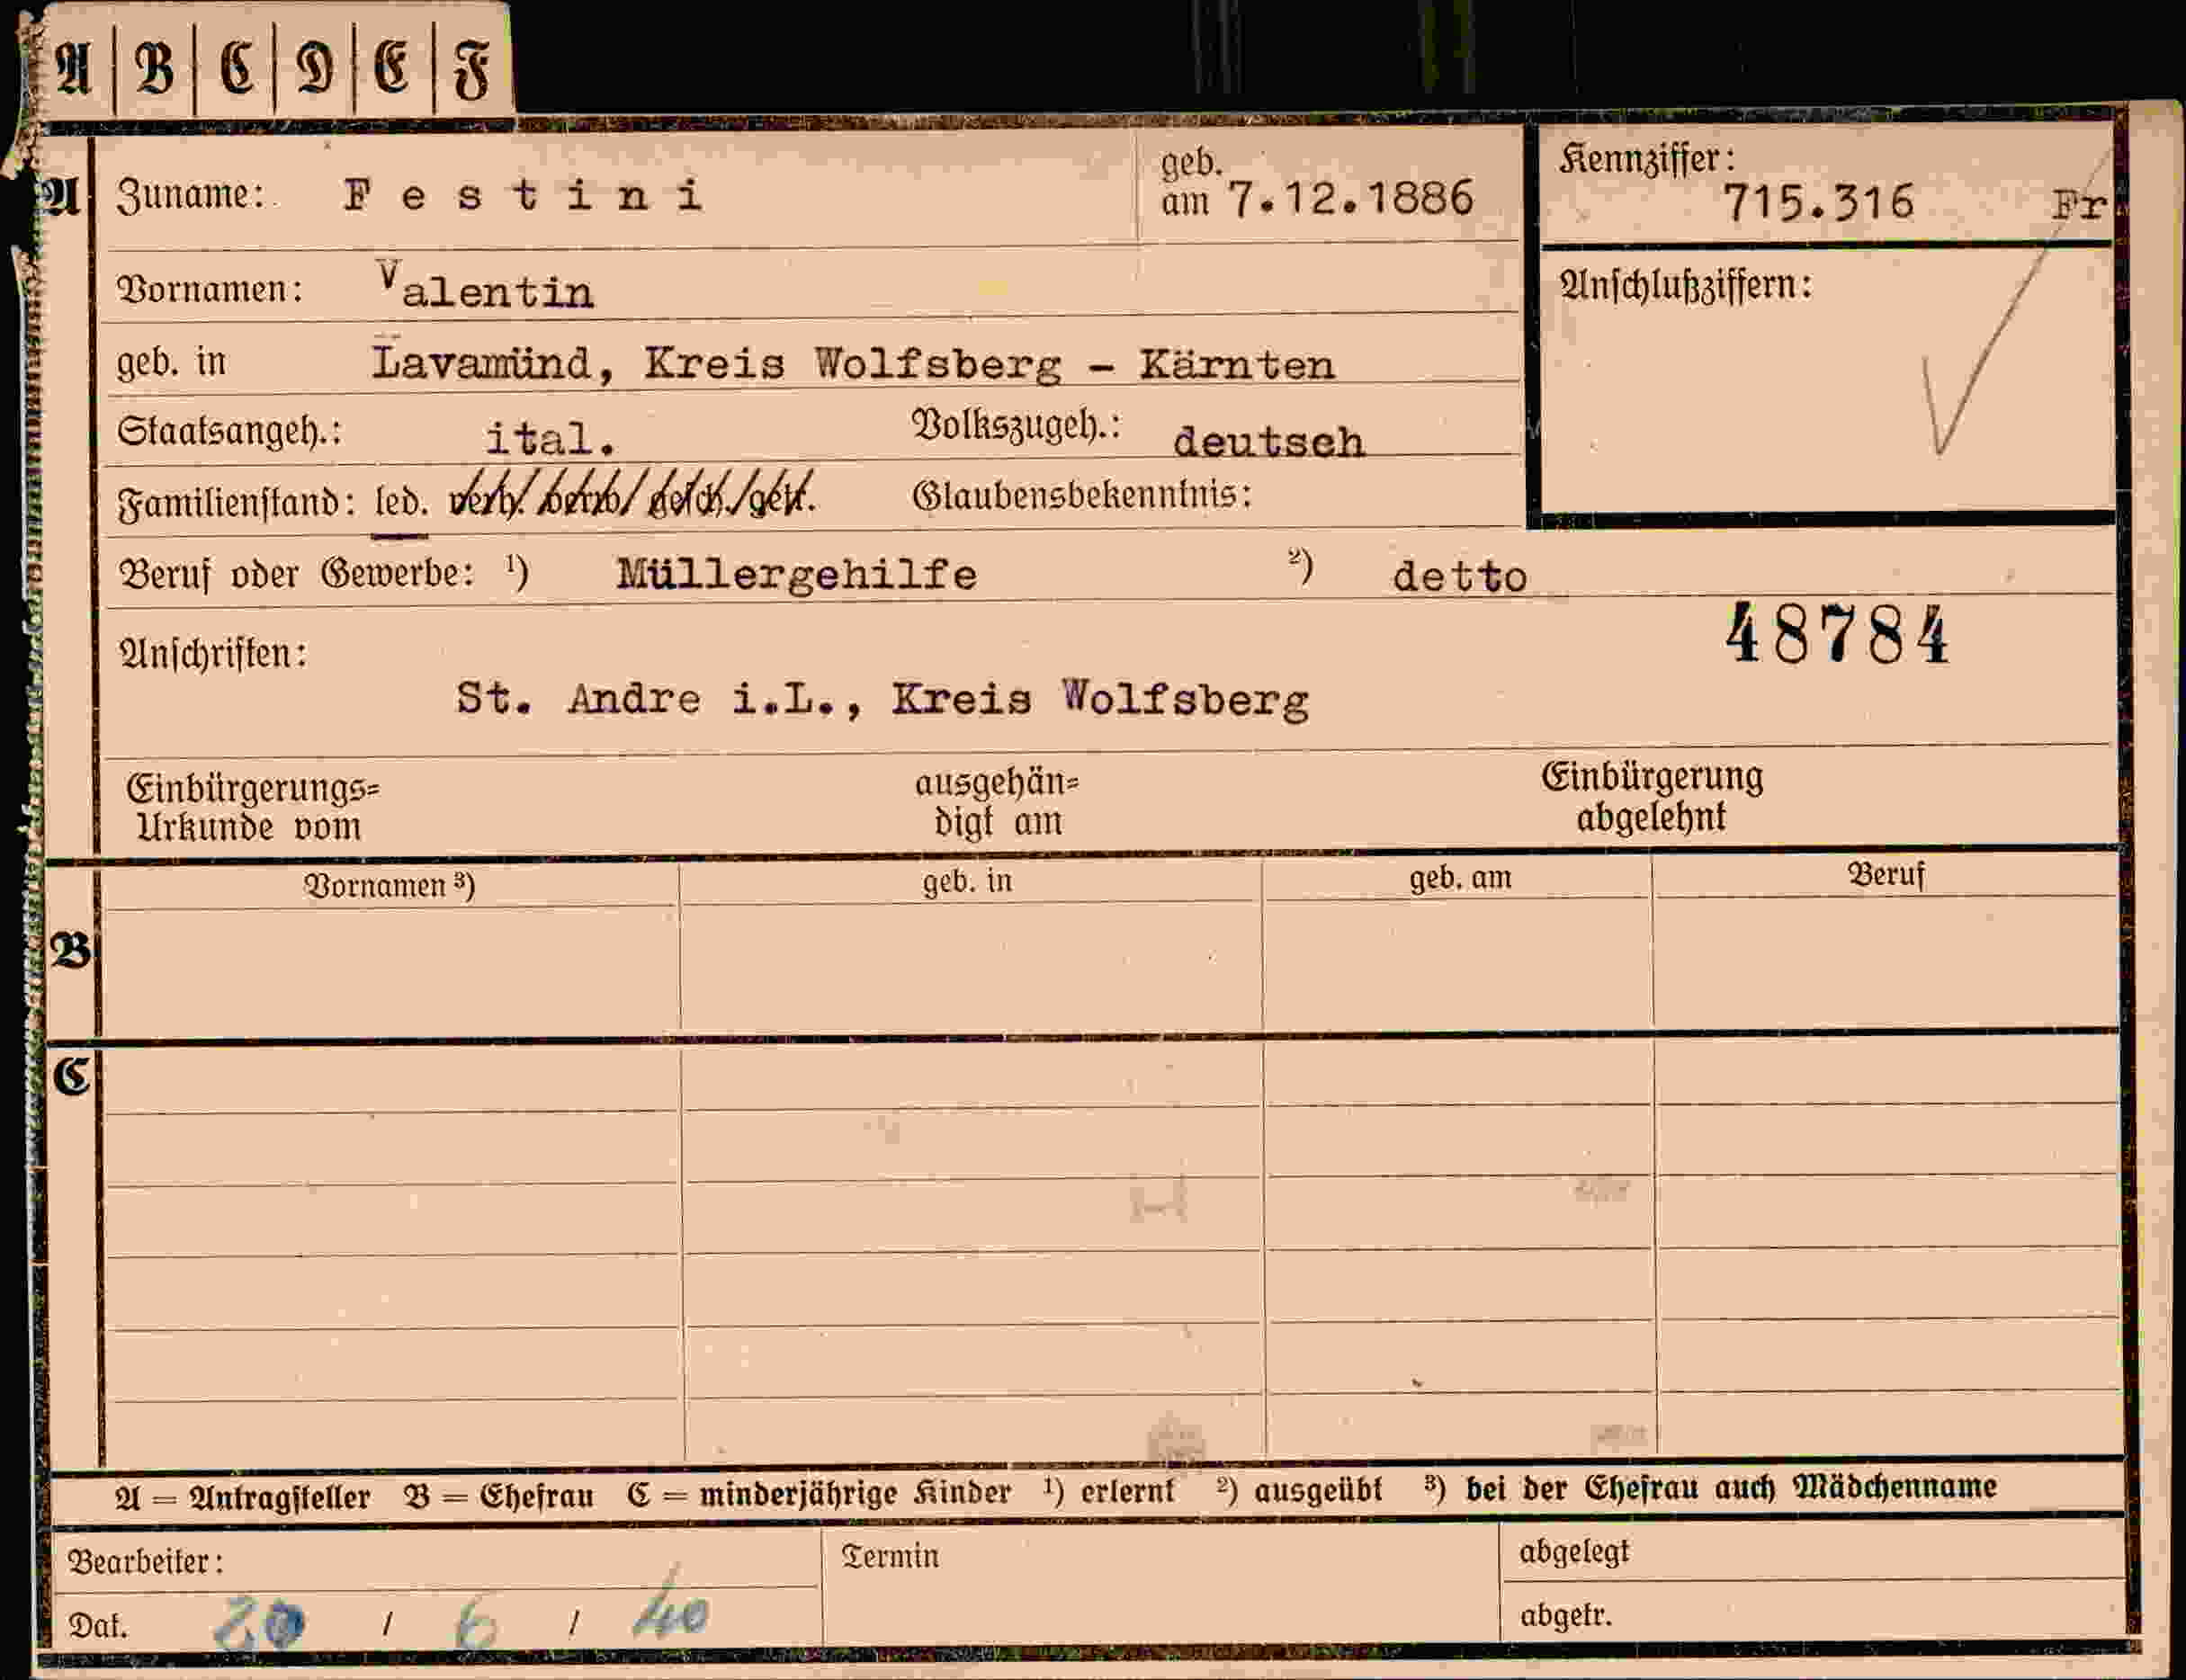 A B C D E F
A Zuname: Festini geb. am 7.12.1886
Kennziffer: 715.316 Fr
Vornamen: Valentin
Anschlußziffern:
geb. in Lavamünd, Kreis Wolfsberg - Kärnten
Staatsangeh.: ital. Volkszugeh.: deutsch
Familienstand: led. verh. verw. gesch. getr. Glaubensbekenntnis:
Beruf oder Gewerbe: ¹) Müllergehilfe ²) detto
48784
Anschriften:
St. Andre i.L., Kreis Wolfsberg
Einbürgerungs= ausgehän= Einbürgerung
Urkunde vom digt am abgelehnt
Vornamen ³) geb. in geb. am Beruf
B
C
A = Antragsteller B = Ehefrau C = minderjährige Kinder ¹) erlernt ²) ausgeübt ³) bei der Ehefrau auch Mädchenname
Bearbeiter: Termin abgelegt
Dat. 20 / 6 / 40 abgetr.